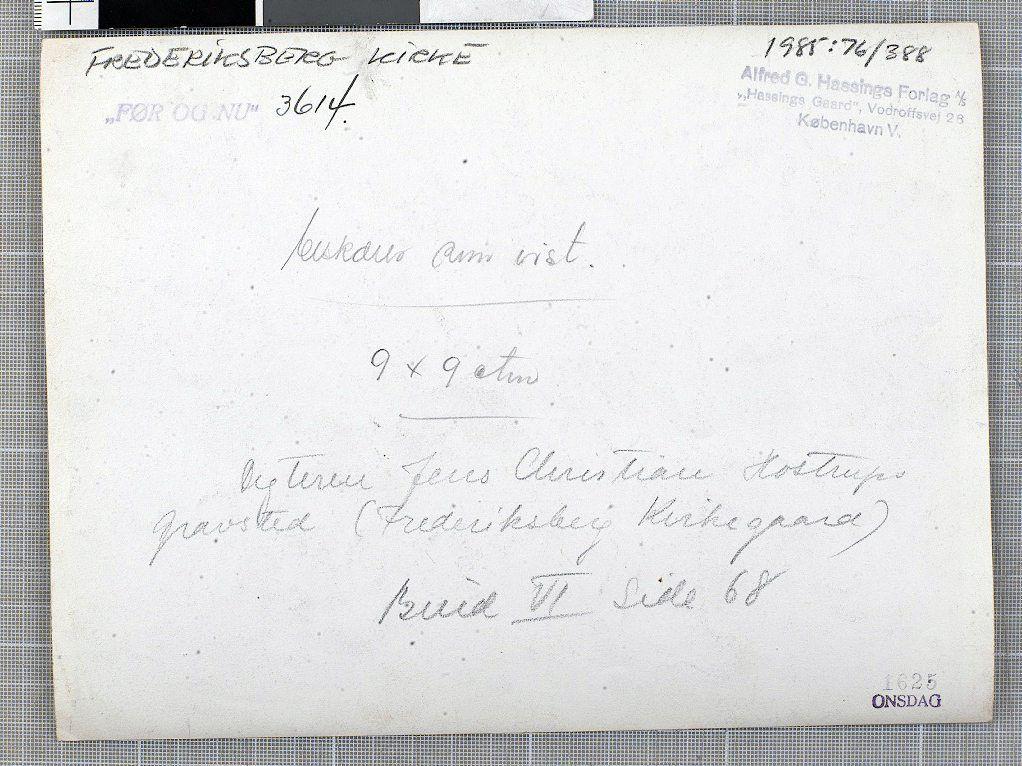 FREDERIKSBERG KIRKE
1985:76/388
„FØR OG NU" 3614.
Alfred G. Hassings Forlag A/S
„Hassings Gaard", Vodroffsvej 26
København V.
som vist.
9 x 9 ctm
Digteren Jens Christian Hostrups
gravsted (Frederiksberg Kirkegaard)
Bind VI Side 68
1625
ONSDAG